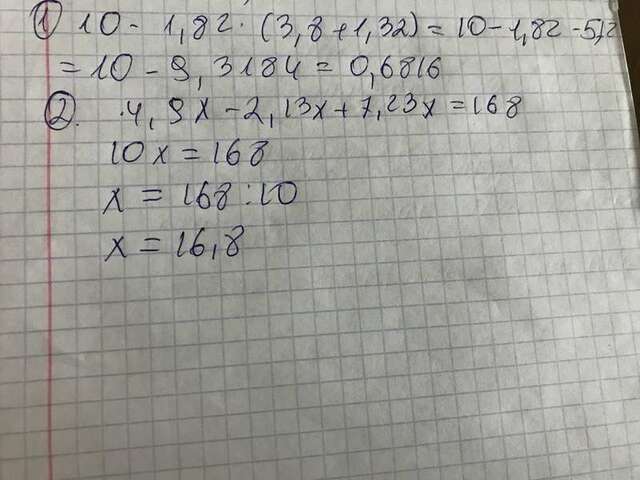 ① 10 - 1,82 · (3,8 + 1,32) = 10 - 1,82 · 5,12
= 10 - 9,3184 = 0,6816
② 4,9x - 2,13x + 7,23x = 168
10x = 168
x = 168 : 10
x = 16,8